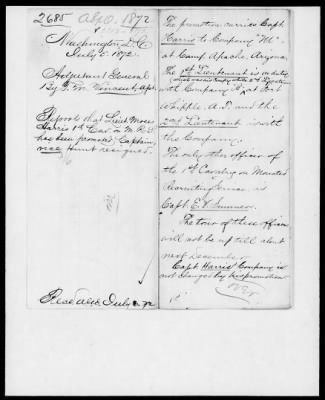 2685 A.G.O. 1872
Washington D.C.
July 5. 1872.
Adjutant General
By T. M. Vincent, A.A.G.
Reports that Lieut. Moses
Harris 1st Cav. on M.R.S.
has been promoted Captain,
vice Hunt resigned.
Recd July 1872
The promotion carries Capt.
Harris to Company "M"
at Camp Apache, Arizona.
The 1st Lieutenant is on duty
with Company at Fort
Whipple A.T. and the
2nd Lieutenant is with
the Company.
The only other officer of
the 1st Cavalry on Mounted
Recruiting Service is
Capt. E. V. Sumner.
The tour of these officers
will not be up till about
next December.
Capt. Harris' Company is
not changed by his promotion